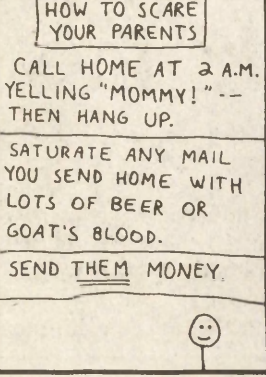 HOW TO SCARE
YOUR PARENTS
CALL HOME AT 2 A.M.
YELLING "MOMMY!" --
THEN HANG UP.
SATURATE ANY MAIL
YOU SEND HOME WITH
LOTS OF BEER OR
GOAT'S BLOOD.
SEND THEM MONEY.